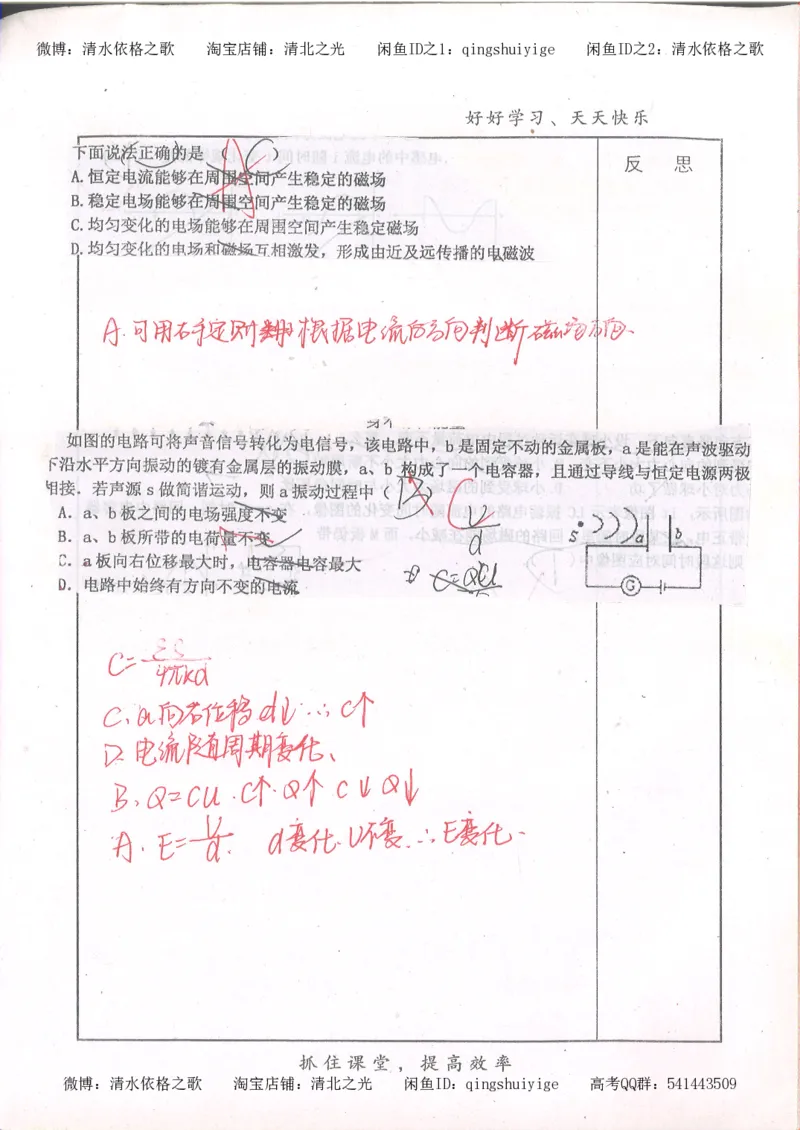 微博：清水依格之歌 淘宝店铺：清北之光 闲鱼ID之1：qingshuiyige 闲鱼ID之2：清水依格之歌
好好学习、天天快乐
反 思
下面说法正确的是（ ）
A.恒定电流能够在周围空间产生稳定的磁场
B.稳定电场能够在周围空间产生稳定的磁场
C.均匀变化的电场能够在周围空间产生稳定磁场
D.均匀变化的电场和磁场互相激发，形成由近及远传播的电磁波
A.可用右手定则根据电流的方向判断磁场方向、
如图的电路可将声音信号转化为电信号，该电路中，b是固定不动的金属板，a是能在声波驱动
下沿水平方向振动的镀有金属层的振动膜，a、b构成了一个电容器，且通过导线与恒定电源两极
相接．若声源s做简谐运动，则a振动过程中（B）
C
A．a、b板之间的电场强度不变
B．a、b板所带的电荷量不变
C．a板向右位移最大时，电容器电容最大
D．电路中始终有方向不变的电流
U/d
C=QU
S a b
G
C=εS/4πkd
C、a向右位移 d↓ ∴C↑
D.电流随周期变化、
B、Q=CU.C↑.Q↑ C↓ Q↓
A.E=U/d. d变化.U不变.∴E变化.
抓住课堂，提高效率
微博：清水依格之歌 淘宝店铺：清北之光 闲鱼ID：qingshuiyige 高考QQ群：541443509